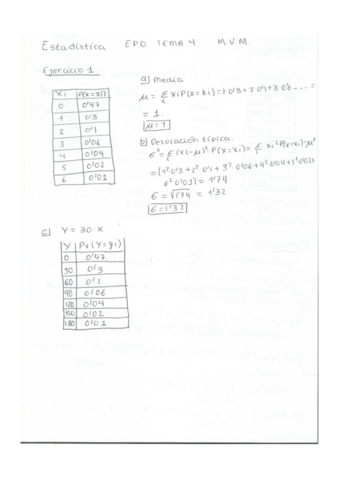 Estadística EPD TEMA 4 M.V.M.
Ejercicio 1
xi P(x=xi)
0 0'47
1 0'3
2 0'1
3 0'06
4 0'04
5 0'02
6 0'01
a) Media
μ = Σ xi P(x=xi) = 1·0'3 + 2·0'1 + 3·0'0... =
= 1.
b) Desviación típica.
σ² = Σ (xi-μ)² P(x=xi) = Σ xi² P(x=xi) - μ²
= (1²0'3 + 2²0'1 + 3²·0'06 + 4²0'04 + 5²0'02+
6²0'01) = 1'74
σ = √1'74 = 1'32
σ = 1'32
c) Y = 30·X
Y Pr(Y=yi)
0 0'47
30 0'3
60 0'1
90 0'06
120 0'04
150 0'02
180 0'01